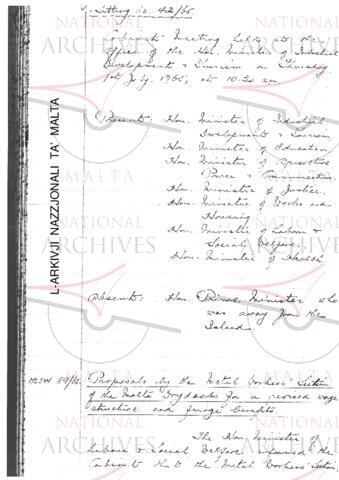 Sitting No. 42/65.
Cabinet Meeting held at the
Office of the Hon. Minister of Industrial
Development & Tourism on Thursday
1st July, 1965, at 10.30 am.
Present: Hon. Minister of Industrial
Development & Tourism
Hon. Minister of Education
Hon. Minister of
Power & Communication
Hon. Minister of Justice
Hon. Minister of Works and
Housing
Hon. Minister of Labour &
Social Welfare
Hon. Minister of Health
Absent: Hon. Prime Minister who
was away from the
Island.
MLSW 59/65 Proposals by the Metal Workers' Section
of the Malta Drydocks for a revised wage
structure and fringe benefits.
The Hon. Minister of
Labour & Social Welfare informed the
Cabinet that the Metal Workers' Section
L-ARKIVJI NAZZJONALI TA' MALTA
NATIONAL ARCHIVES